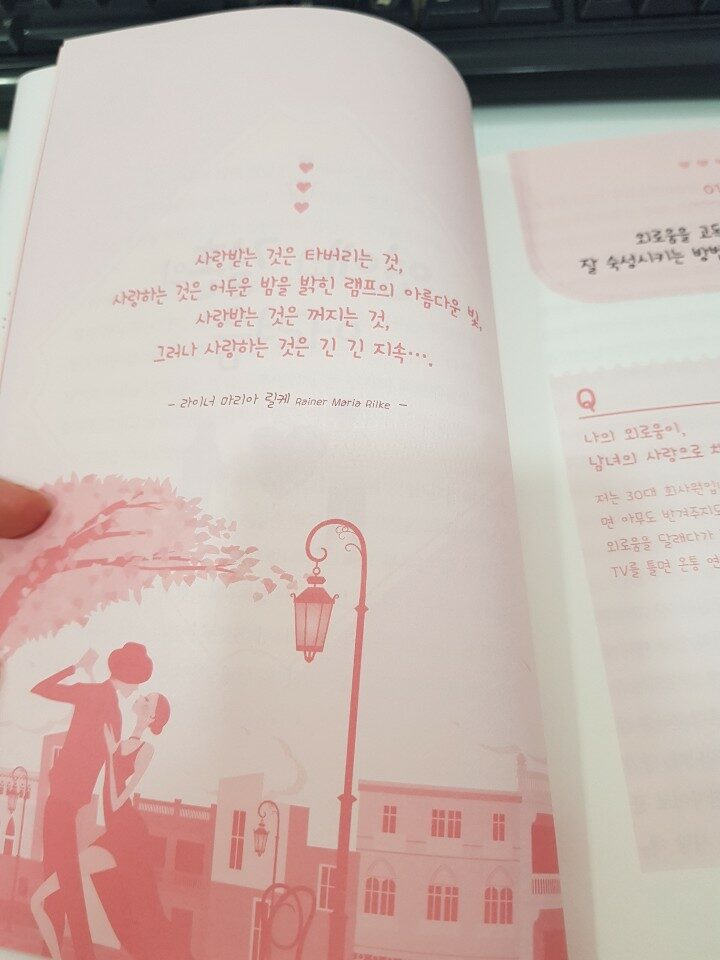 사랑받는 것은 타버리는 것,
사랑하는 것은 어두운 밤을 밝힌 램프의 아름다운 빛,
사랑받는 것은 꺼지는 것,
그러나 사랑하는 것은 긴 긴 지속….
- 라이너 마리아 릴케 Rainer Maria Rilke -
01
외로움을
잘 숙성시키는
Q
나의 외로움이,
남녀의 사랑으로
저는 30대
면 아무도
외로움을 달래다가
TV를 틀면 온통